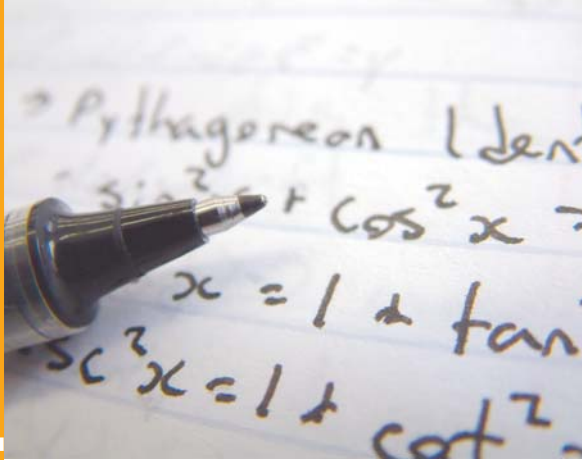 → Pythagorean Iden
sin²x + cos²x =
x = 1 + tan
sc²x = 1 + cot²